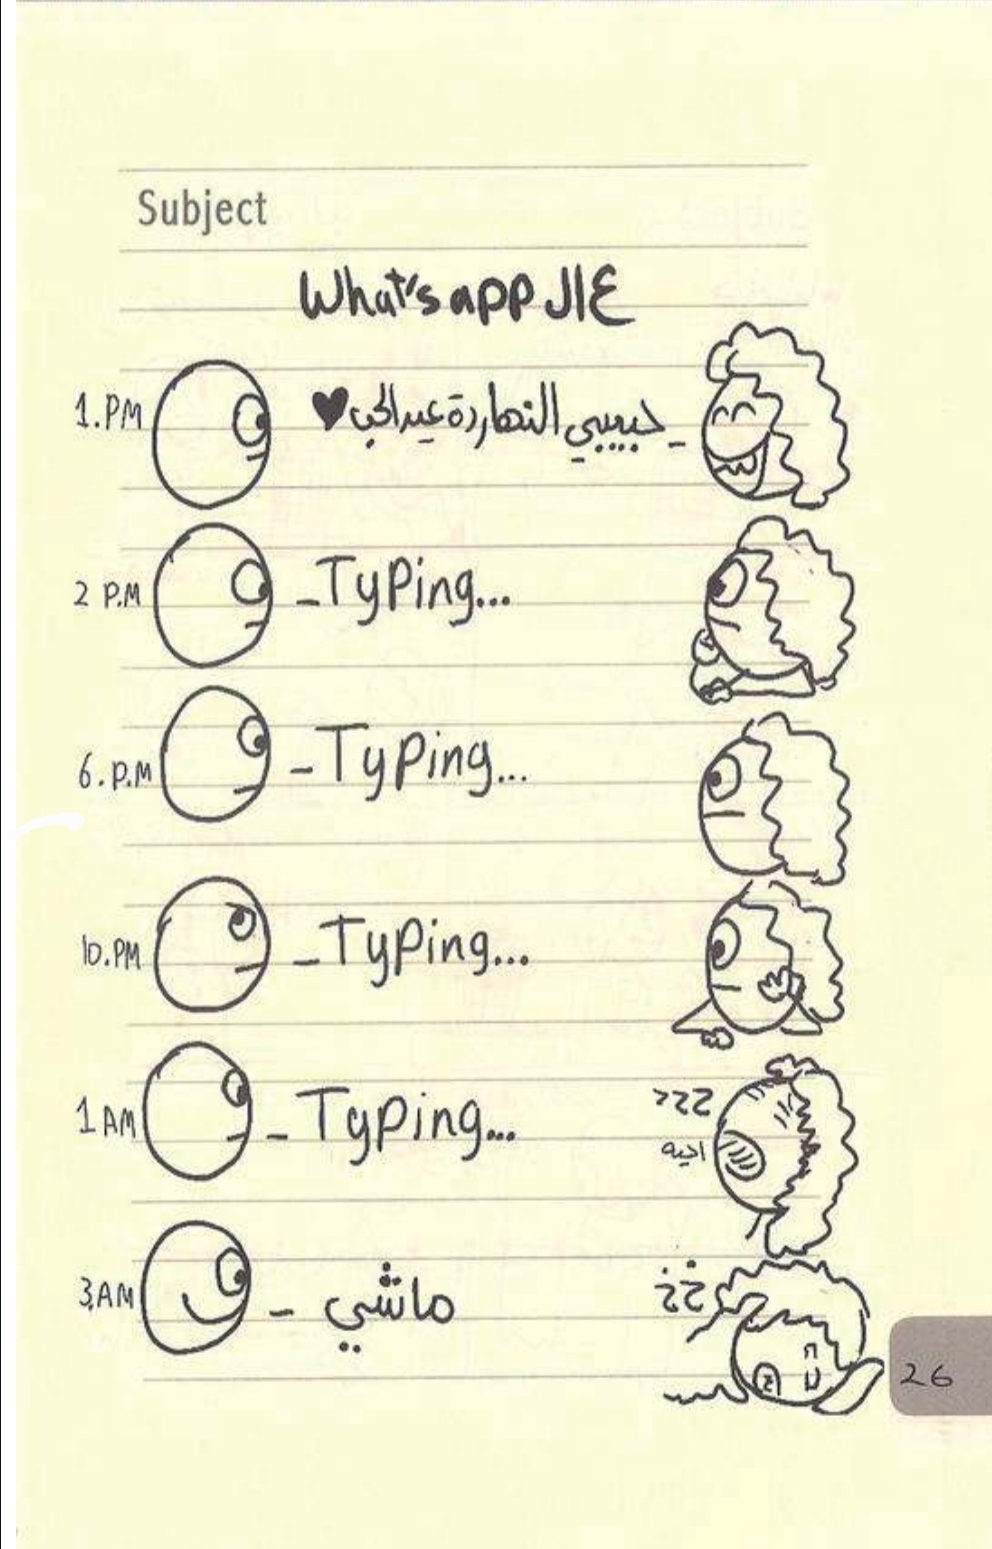 Subject
ع ال What's app
1.PM
- حبيبي النهاردة عيد الحب ♥
2 P.M
- Typing...
6.P.M
- Typing...
10.PM
- Typing...
1 AM
- Typing...
خخخ
احيه
3.AM
- ماشي
خخ
26